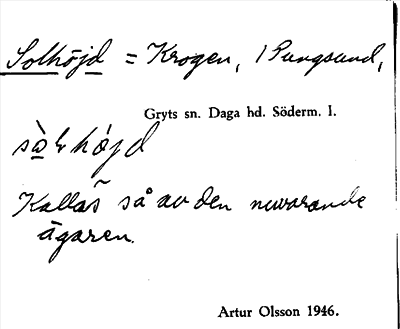 Solhöjd = Krogen, 1 Pungsund,
Gryts sn. Daga hd. Söderm. l.
höjd
Kallas så av den nuvarande
ägaren.
Artur Olsson 1946.